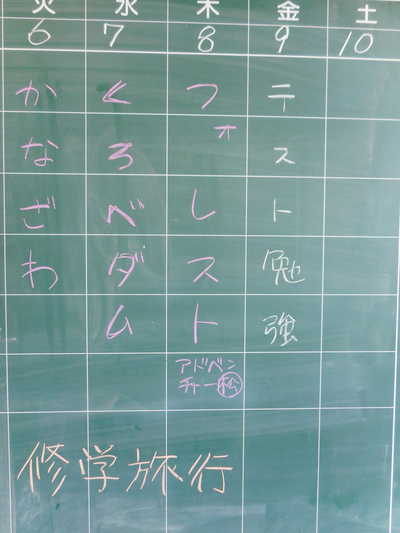 火 水 木 金 土
6 7 8 9 10
かなざわ
くろべダム
フォレスト
アドベン
チャー松
テスト勉強
修学旅行